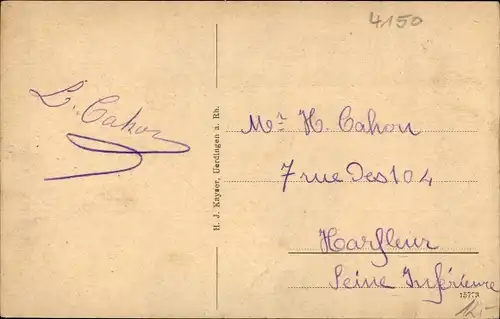 4150
L. Cahon
Mr H. Cahon
7 rue Des 104
Harfleur
Seine Inférieure
H. J. Kayser, Uerdingen a. Rh.